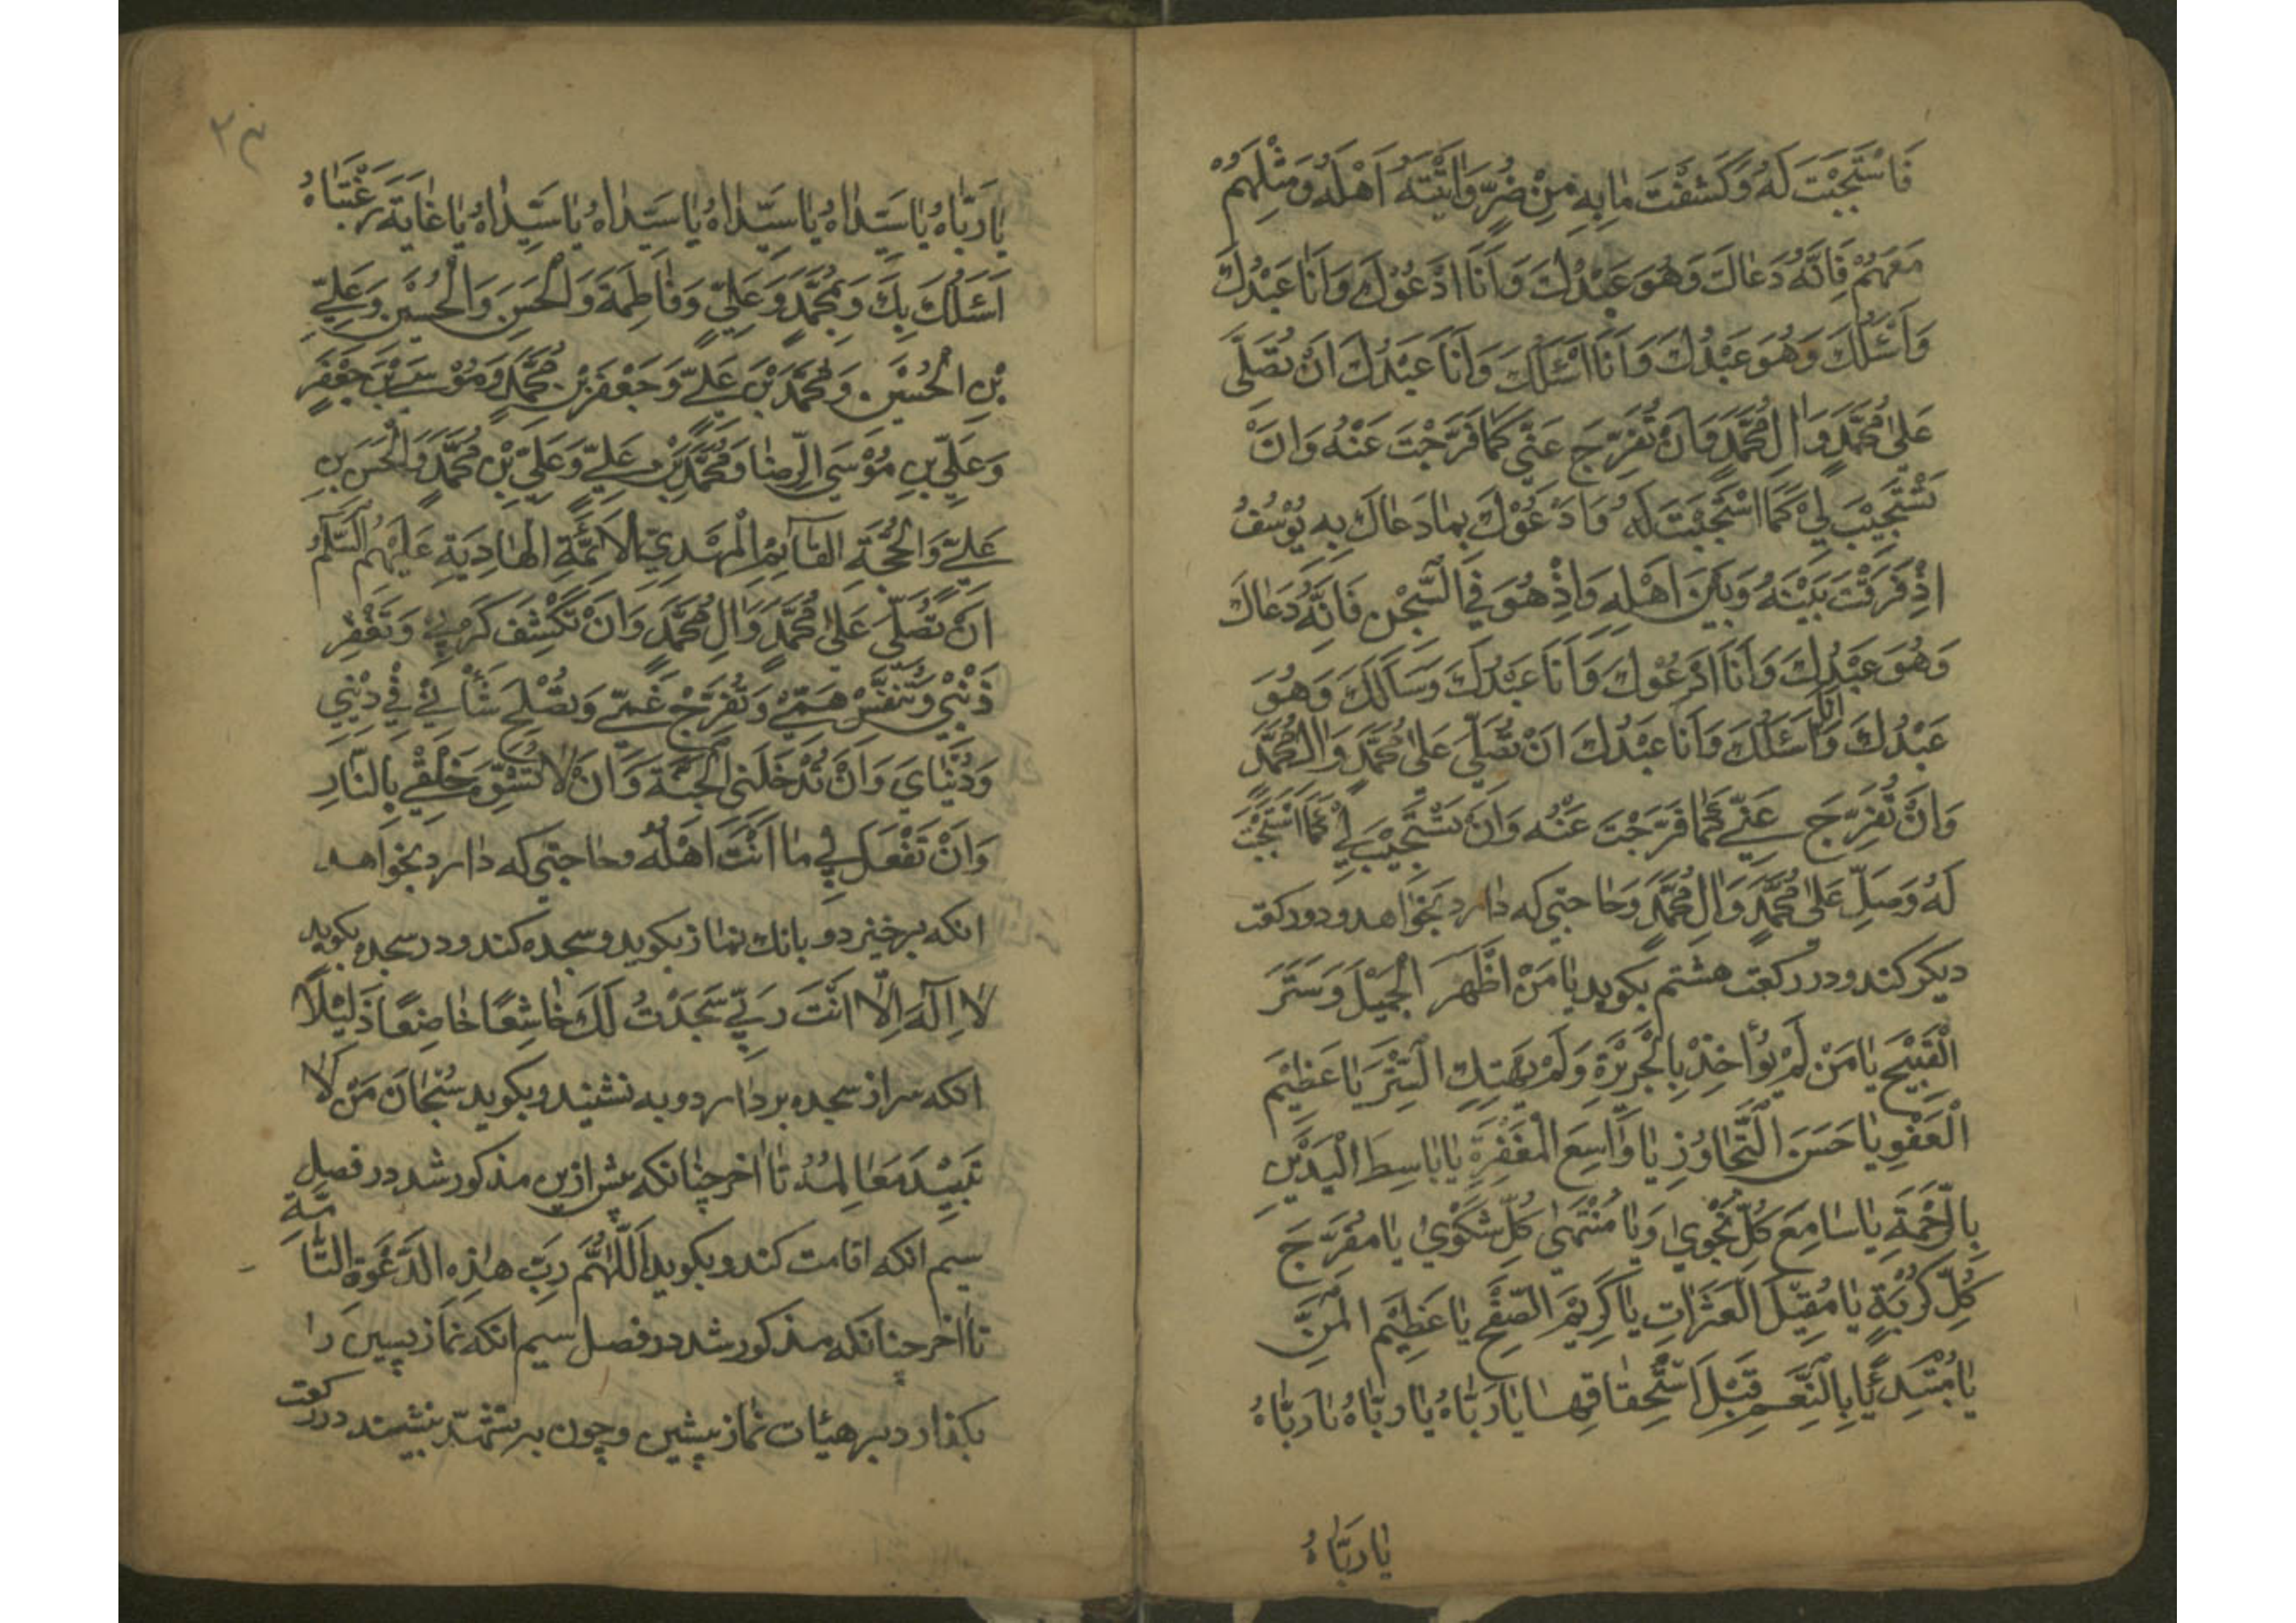 فَاسْتَجَبْتَ لَهُ وَكَشَفْتَ مٰا بِهِ مِنْ ضُرٍّ وَاٰتَيْتَهُ اَهْلَهُ وَمِثْلَهُمْ
مَعَهُمْ فَاِنَّهُ دَعٰاكَ وَهُوَ عَبْدُكَ وَاَنَا اَدْعُوْكَ وَاَنَا عَبْدُكَ
وَاَسْئَلُكَ وَهُوَ عَبْدُكَ وَاَنَا اَسْئَلُكَ وَاَنَا عَبْدُكَ اَنْ تُصَلِّىَ
عَلىٰ مُحَمَّدٍ وَاٰلِ مُحَمَّدٍ وَاَنْ تُفَرِّجَ عَنّى كَمٰا فَرَّجْتَ عَنْهُ وَاَنْ
تَسْتَجِيْبَ لِيْ كَمَا اسْتَجَبْتَ لَهُ وَاَدْعُوْكَ بِمٰا دَعٰاكَ بِهِ يُوْسُفُ
اِذْ فَرَقْتَ بَيْنَهُ وَبَيْنَ اَهْلِهِ وَاِذْ هُوَ فِي السِّجْنِ فَاِنَّهُ دَعٰاكَ
وَهُوَ عَبْدُكَ وَاَنَا اَدْعُوْكَ وَاَنَا عَبْدُكَ وَسَاَلَكَ وَهُوَ
عَبْدُكَ وَاَنَا اَسْئَلُكَ وَاَنَا عَبْدُكَ اَنْ تُصَلِّيَ عَلىٰ مُحَمَّدٍ وَاٰلِ مُحَمَّدٍ
وَاَنْ تُفَرِّجَ عَنِّي كَمٰا فَرَّجْتَ عَنْهُ وَاَنْ تَسْتَجِيْبَ لِيْ كَمَا اسْتَجَبْتَ
لَهُ وَصَلِّ عَلىٰ مُحَمَّدٍ وَاٰلِ مُحَمَّدٍ وَحٰاجتى كه دٰارد بخوٰاهد و دو ركعت
ديكر كند و در ركعت هشتم بكويد يٰا مَنْ اَظْهَرَ الْجَمِيْلَ وَسَتَرَ
الْقَبِيْحَ يٰا مَنْ لَمْ يُؤٰاخِذْ بِالْجَرِيْرَةِ وَلَمْ يَهْتِكِ السِّتْرَ يٰا عَظِيْمَ
الْعَفْوِ يٰا حَسَنَ التَّجٰاوُزِ يٰا وٰاسِعَ الْمَغْفِرَةِ يٰا بٰاسِطَ الْيَدَيْنِ
بِالرَّحْمَةِ يٰا سٰامِعَ كُلِّ نَجْوىٰ وَيٰا مُنْتَهىٰ كُلِّ شَكْوىٰ يٰا مُفَرِّجَ
كُلِّ كُرْبَةٍ يٰا مُقِيْلَ الْعَثَرٰاتِ يٰا كَرِيْمَ الصَّفْحِ يٰا عَظِيْمَ الْمَنِّ
يٰا مُبْتَدِئًا بِالنِّعَمِ قَبْلَ اسْتِحْقٰاقِهٰا يٰا رَبّٰاهُ يٰا رَبّٰاهُ يٰا رَبّٰاهُ
يٰا رَبّٰاهُ
يٰا رَبّٰاهُ يٰا سَيِّدٰاهُ يٰا سَيِّدٰاهُ يٰا سَيِّدٰاهُ يٰا سَيِّدٰاهُ يٰا غٰايَةَ رَغْبَتٰاهُ
اَسْئَلُكَ بِكَ وَبِمُحَمَّدٍ وَعَلِيٍّ وَفٰاطِمَةَ وَالْحَسَنِ وَالْحُسَيْنِ وَعَلِيِّ
بْنِ الْحُسَيْنِ وَمُحَمَّدِ بْنِ عَلِيٍّ وَجَعْفَرِ بْنِ مُحَمَّدٍ وَمُوْسَى بْنِ جَعْفَرٍ
وَعَلِيِّ بْنِ مُوْسَى الرِّضٰا وَمُحَمَّدِ بْنِ عَلِيٍّ وَعَلِيِّ بْنِ مُحَمَّدٍ وَالْحَسَنِ بْنِ
عَلِيٍّ وَالْحُجَّةِ الْقٰائِمِ الْمَهْدِيِّ الْاَئِمَّةِ الْهٰادِيَةِ عَلَيْهِمُ السَّلٰمُ
اَنْ تُصَلِّيَ عَلىٰ مُحَمَّدٍ وَاٰلِ مُحَمَّدٍ وَاَنْ تَكْشِفَ كَرْبِيْ وَتَغْفِرَ
ذَنْبِيْ وَتُنَفِّسَ هَمِّيْ وَتُفَرِّجَ غَمِّيْ وَتُصْلِحَ شَأْنِيْ فِيْ دِيْنِيْ
وَدُنْيٰايَ وَاَنْ تُدْخِلَنِى الْجَنَّةَ وَاَنْ لٰا تُشَوِّهَ خَلْقِيْ بِالنّٰارِ
وَاَنْ تَفْعَلَ بِيْ مٰا اَنْتَ اَهْلُهُ وحٰاجتى كه دٰارد بخوٰاهد
انكه برخيزد و بانك نماز بكويد و سجده كند و در سجده بكويد
لٰا اِلٰهَ اِلّٰا اَنْتَ رَبِّيْ سَجَدْتُ لَكَ خٰاشِعًا خٰاضِعًا ذَلِيْلًا
انكه سر از سجده بردٰارد و به نشيند و بكويد سُبْحٰانَ مَنْ لٰا
تَبِيْدُ مَعٰالِمُهُ تٰا اخر چنٰانكه پيش ازين مذكور شد در فصل
سيم انكه اقامت كند و بكويد اَللّٰهُمَّ رَبَّ هٰذِهِ الدَّعْوَةِ التّٰامَّةِ
تٰا اخر چنانكه مذكور شد در فصل سيم انكه نماز پسين رٰا
بكذارد بر هيئات نماز پيشين و چون به تشهّد بنشيند در ركعت